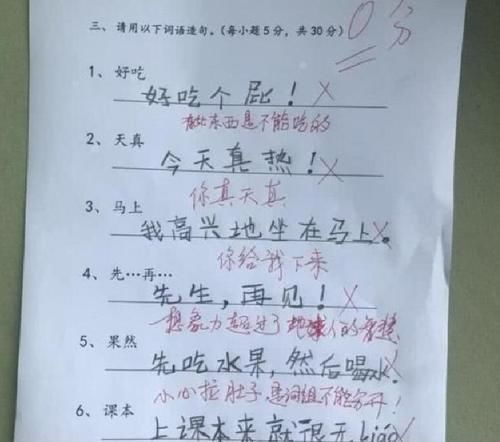 三、请用以下词语造句。(每小题5分，共30分)
0分
1、好吃
好吃个屁！
有些东西是不能吃的
2、天真
今天真热！
你真天真
3、马上
我高兴地坐在马上。
你给我下来
4、先…再…
先生，再见！
想象力超过了地球人的智慧
5、果然
先吃水果，然后喝水.
小心拉肚子 是词组不能分开！
6、课本
上课本来就很无liáo